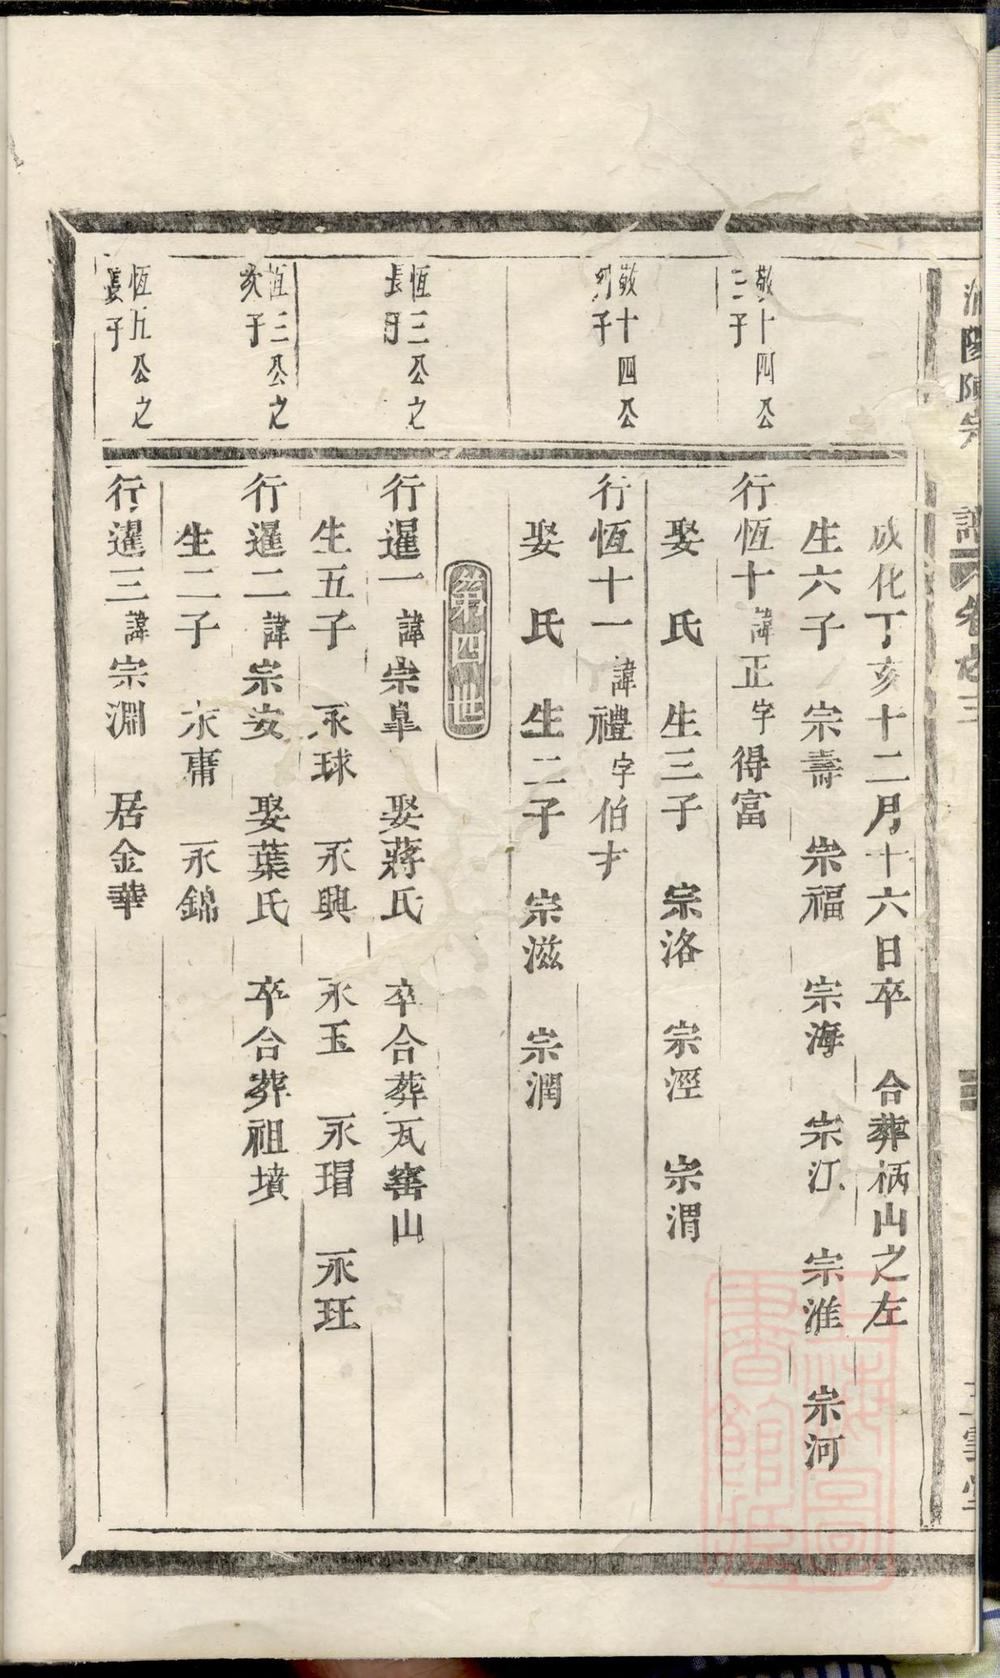 陽陳宗譜卷之三
成化丁亥十二月十六日卒 合葬柄山之左
生六子 宗壽 宗福 宗海 宗江 宗淮 宗河
敬十四公
二子
行恆十諱正字得富
娶 氏 生三子 宗洛 宗溼 宗渭
敬十四公
幼子
行恆十一諱禮字伯才
娶 氏 生二子 宗滋 宗潤
第四世
恆三公之
長子
行暹一諱崇皐 娶蔣氏 卒合葬瓦窰山
生五子 永球 永興 永玉 永瑁 永玨
恆三公之
次子
行暹二諱宗安 娶葉氏 卒合葬祖墳
生二子 永庸 永錦
恆五公之
長子
行暹三諱宗淵 居金華